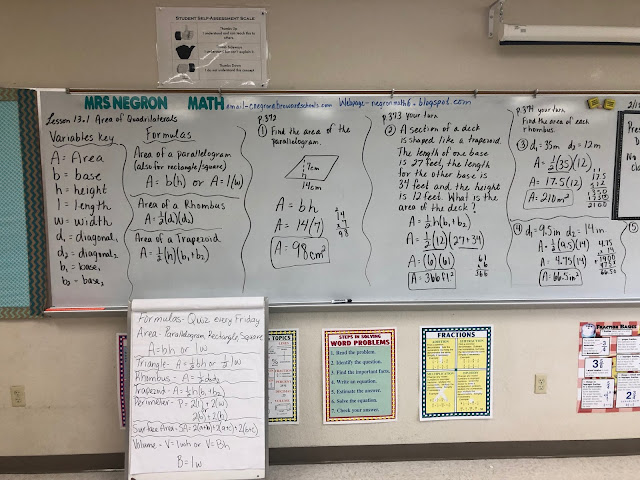 STUDENT SELF-ASSESSMENT SCALE
Thumbs Up
I understand and can teach this to others.
Thumbs Sideways
Thumbs Down
I do not understand this concept
MRS NEGRON MATH
Webpage- negronmath6.blogspot.com
Lesson 13.1 Area of Quadrilaterals
Variables key
A = Area
b = base
h = height
l = length
w = width
d₁ = diagonal₁
d₂ = diagonal₂
b₁ = base₁
b₂ = base₂
Formulas
Area of a parallelogram
(also for rectangle/square)
A = b(h) or A = l(w)
Area of a Rhombus
A = ½(d₁)(d₂)
Area of a Trapezoid
A = ½(h)(b₁+b₂)
p.372
① Find the area of the
parallelogram.
7cm
14cm
A = bh
A = 14(7)
A = 98cm²
14
x 7
98
p.373 your turn
② A section of a deck
is shaped like a trapezoid.
The length of one base
is 27 feet, the length
for the other base is
34 feet and the height
is 12 feet. What is the
area of the deck?
A = ½h(b₁+b₂)
A = ½(12)(27+34)
A = (6)(61)
A = 366ft²
61
x 6
366
p.374 your turn
Find the area of each
rhombus.
③ d₁=35m d₂=12m
A = ½(35)(12)
A = 17.5(12)
A = 210m²
④ d₁=9.5in d₂=14in
A = ½(9.5)(14)
A = 4.75(14)
A = 66.5in²
⑤
Formulas- Quiz every Friday
Area- Parallelogram, Rectangle, Square
A = bh or lw
Triangle- A = ½bh or ½lw
Rhombus- A = ½d₁d₂
Trapezoid- A = ½h(b₁+b₂)
Perimeter- P = 2(l)+2(w)
2(b)+2(h)
Surface Area- SA = 2(a·b)+2(a·c)+2(b·c)
Volume- V = lwh or V = Bh
B = lw
TOPICS
STEPS IN SOLVING
WORD PROBLEMS
1. Read the problem.
2. Identify the question.
3. Find the important facts.
4. Write an equation.
5. Estimate the answer.
6. Solve the equation.
7. Check your answer.
FRACTIONS